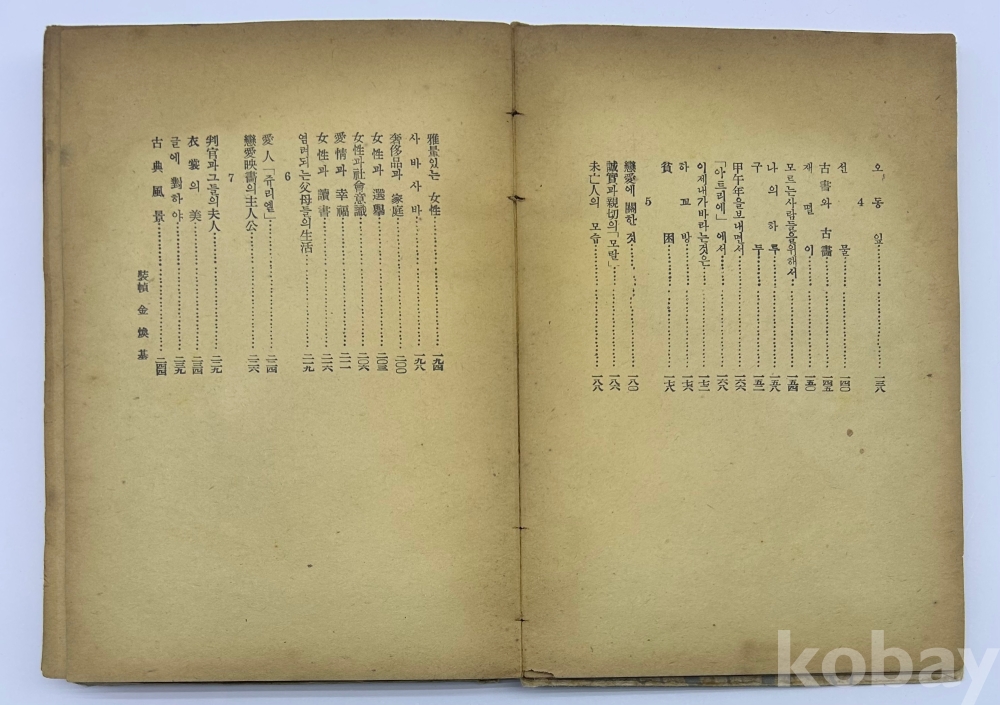 오동잎 一三八
4
선물 一四〇
古書와 古畵 一四五
재떨이 一五〇
모르는사람들을위해서 一五四
나의 하루 一五八
구두 一五二
甲午年을보내면서 一六六
「아트리에」에서 一六八
이제내가바라는것은 一七二
하꼬방 一七六
貧困 一七八
5
戀愛에 關한 것 一八〇
誠實과親切의「모랄」 一八六
未亡人의 모습 一八八
雅量있는 女性 一九四
사바사바 一九八
奢侈品과 家庭 二〇〇
女性과 選擧 二〇三
女性과社會意識 二〇六
愛情과 幸福 二一一
女性과 讀書 二一六
염려되는父母들의生活 二一九
6
愛人「쥬리엘」 二二四
戀愛映畵의主人公 二二六
7
判官과그들의夫人 二二九
衣裳의 美 二三四
글에 對하야 二三九
古典風景 二四四
裝幀 金煥基
kobay